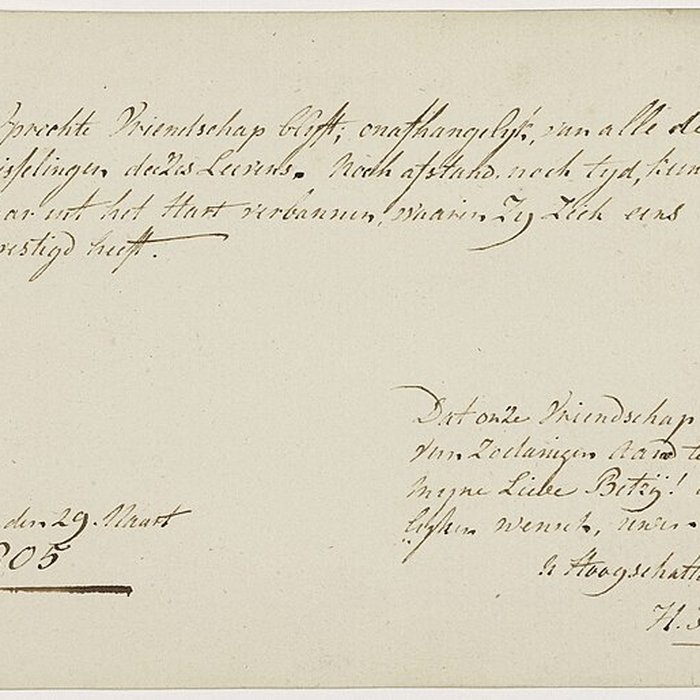 Oprechte Vriendschap blyft, onafhangelyk, van alle
isselingen deezes Leevens. Noch afstand noch tyd, kun
aar uit het Hart verbannen, waarin Zy Zich eens
vestigd heeft.
Dat onze Vriendschap
van Zodanigen Aard
myne Lieve Betzy!
lyken wensch, uwer
den 29. Maart
805
Hoogschatte
H.